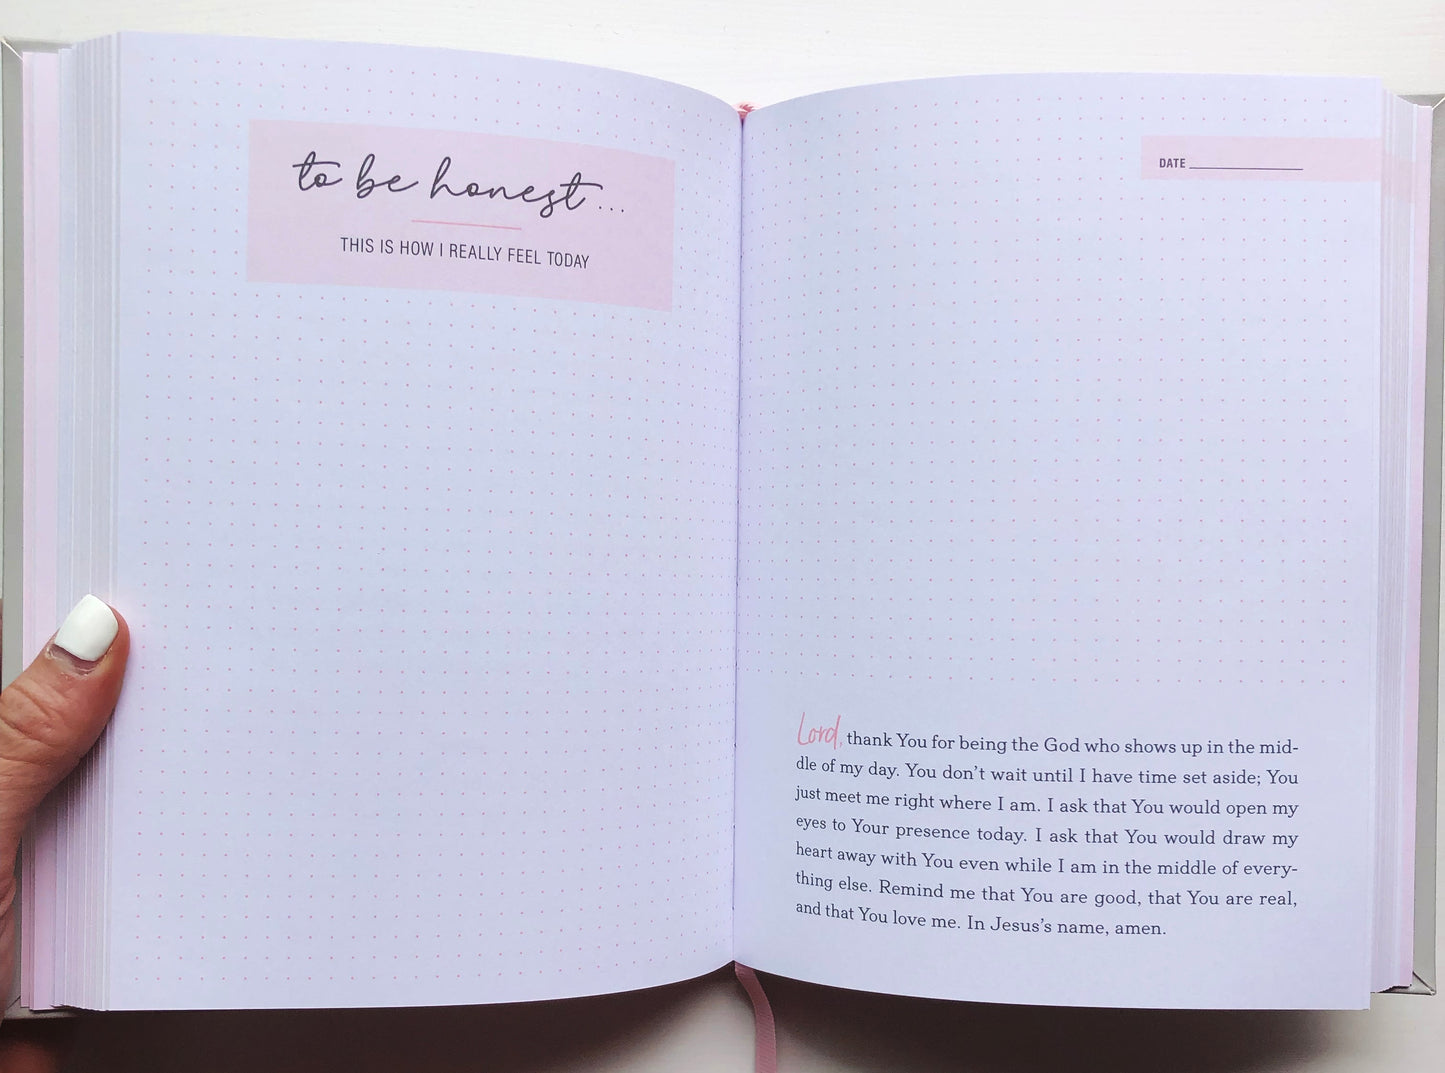 to be honest...
THIS IS HOW I REALLY FEEL TODAY
DATE
Lord, thank You for being the God who shows up in the mid-
dle of my day. You don’t wait until I have time set aside; You
just meet me right where I am. I ask that You would open my
eyes to Your presence today. I ask that You would draw my
heart away with You even while I am in the middle of every-
thing else. Remind me that You are good, that You are real,
and that You love me. In Jesus’s name, amen.